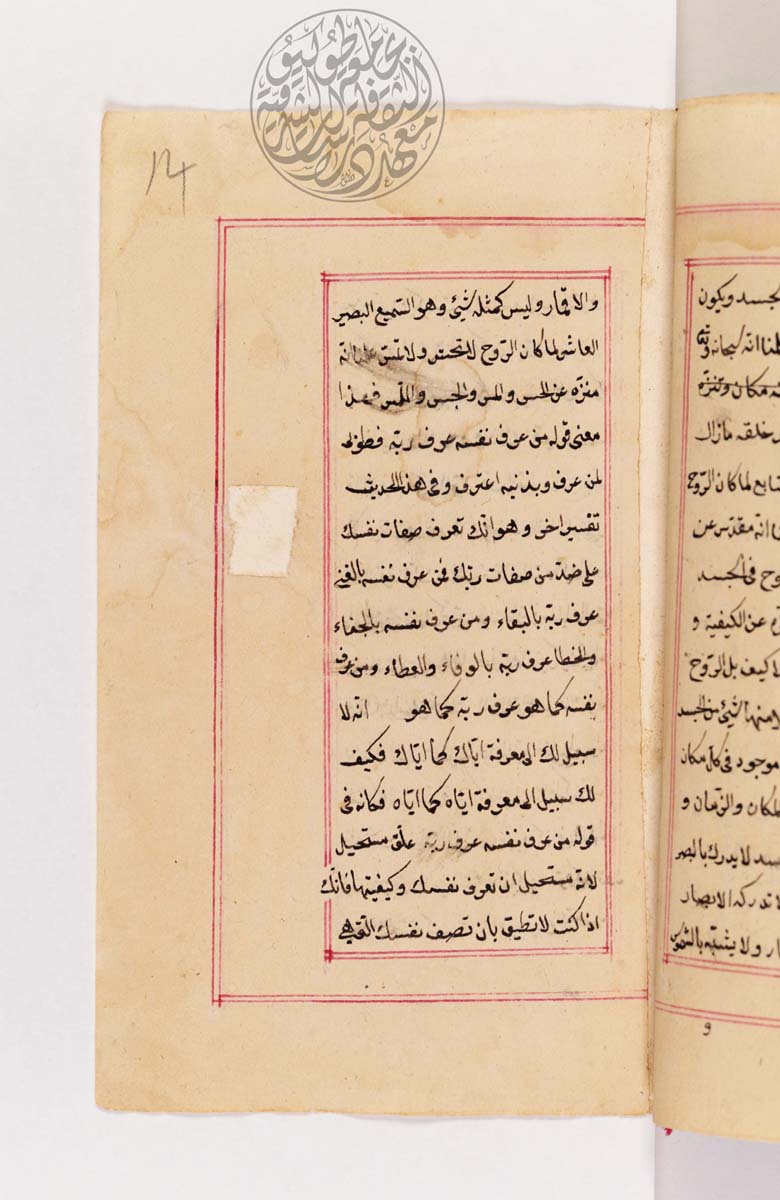 والاقمار وليس كمثله شيئ وهو السّميع البصير
العاشر لما كان الرّوح لا تحسّ ولا تمسّ علمنا انّه
منزّه عن الحس والمس والجس واللمس فهذا
معنى قوله من عرف نفسه عرف ربّه فطوبى
لمن عرف وبذنبه اعترف وفى هذ الحديث
تفسير اخر وهو انّك تعرف صفات نفسك
على ضدّ من صفات ربّك فمن عرف نفسه بالفنى
عرف ربّه بالبقاء ومن عرف نفسه بالجفاء
والخطا عرف ربّه بالوفاء والعطاء ومن عرف
نفسه كما هو عرف ربّه كما هو انّه لا
سبيل لك الى معرفة ايّاك كما ايّاك فكيف
لك سبيل الى معرفة ايّاه كما ايّاه فكانه فى
قوله من عرف نفسه عرف ربّه علّق مستحيل
لانّه مستحيل ان تعرف نفسك وكيفيتها فانّك
اذا كنت لا تطيق بان تصف نفسك الّتى هى
الجسد ويكون
مكان وتنزّه
خلقه مازال
لما كان الرّوح
انّه مقدّس عن
فى الجسد
عن الكيفية و
كيف بل الرّوح
منها شيئ من الجسد
موجود فى كل مكان
المكان والزّمان و
لا يدرك بالبصر
تدركه الابصار
ولا يشبّه بالشموس
و